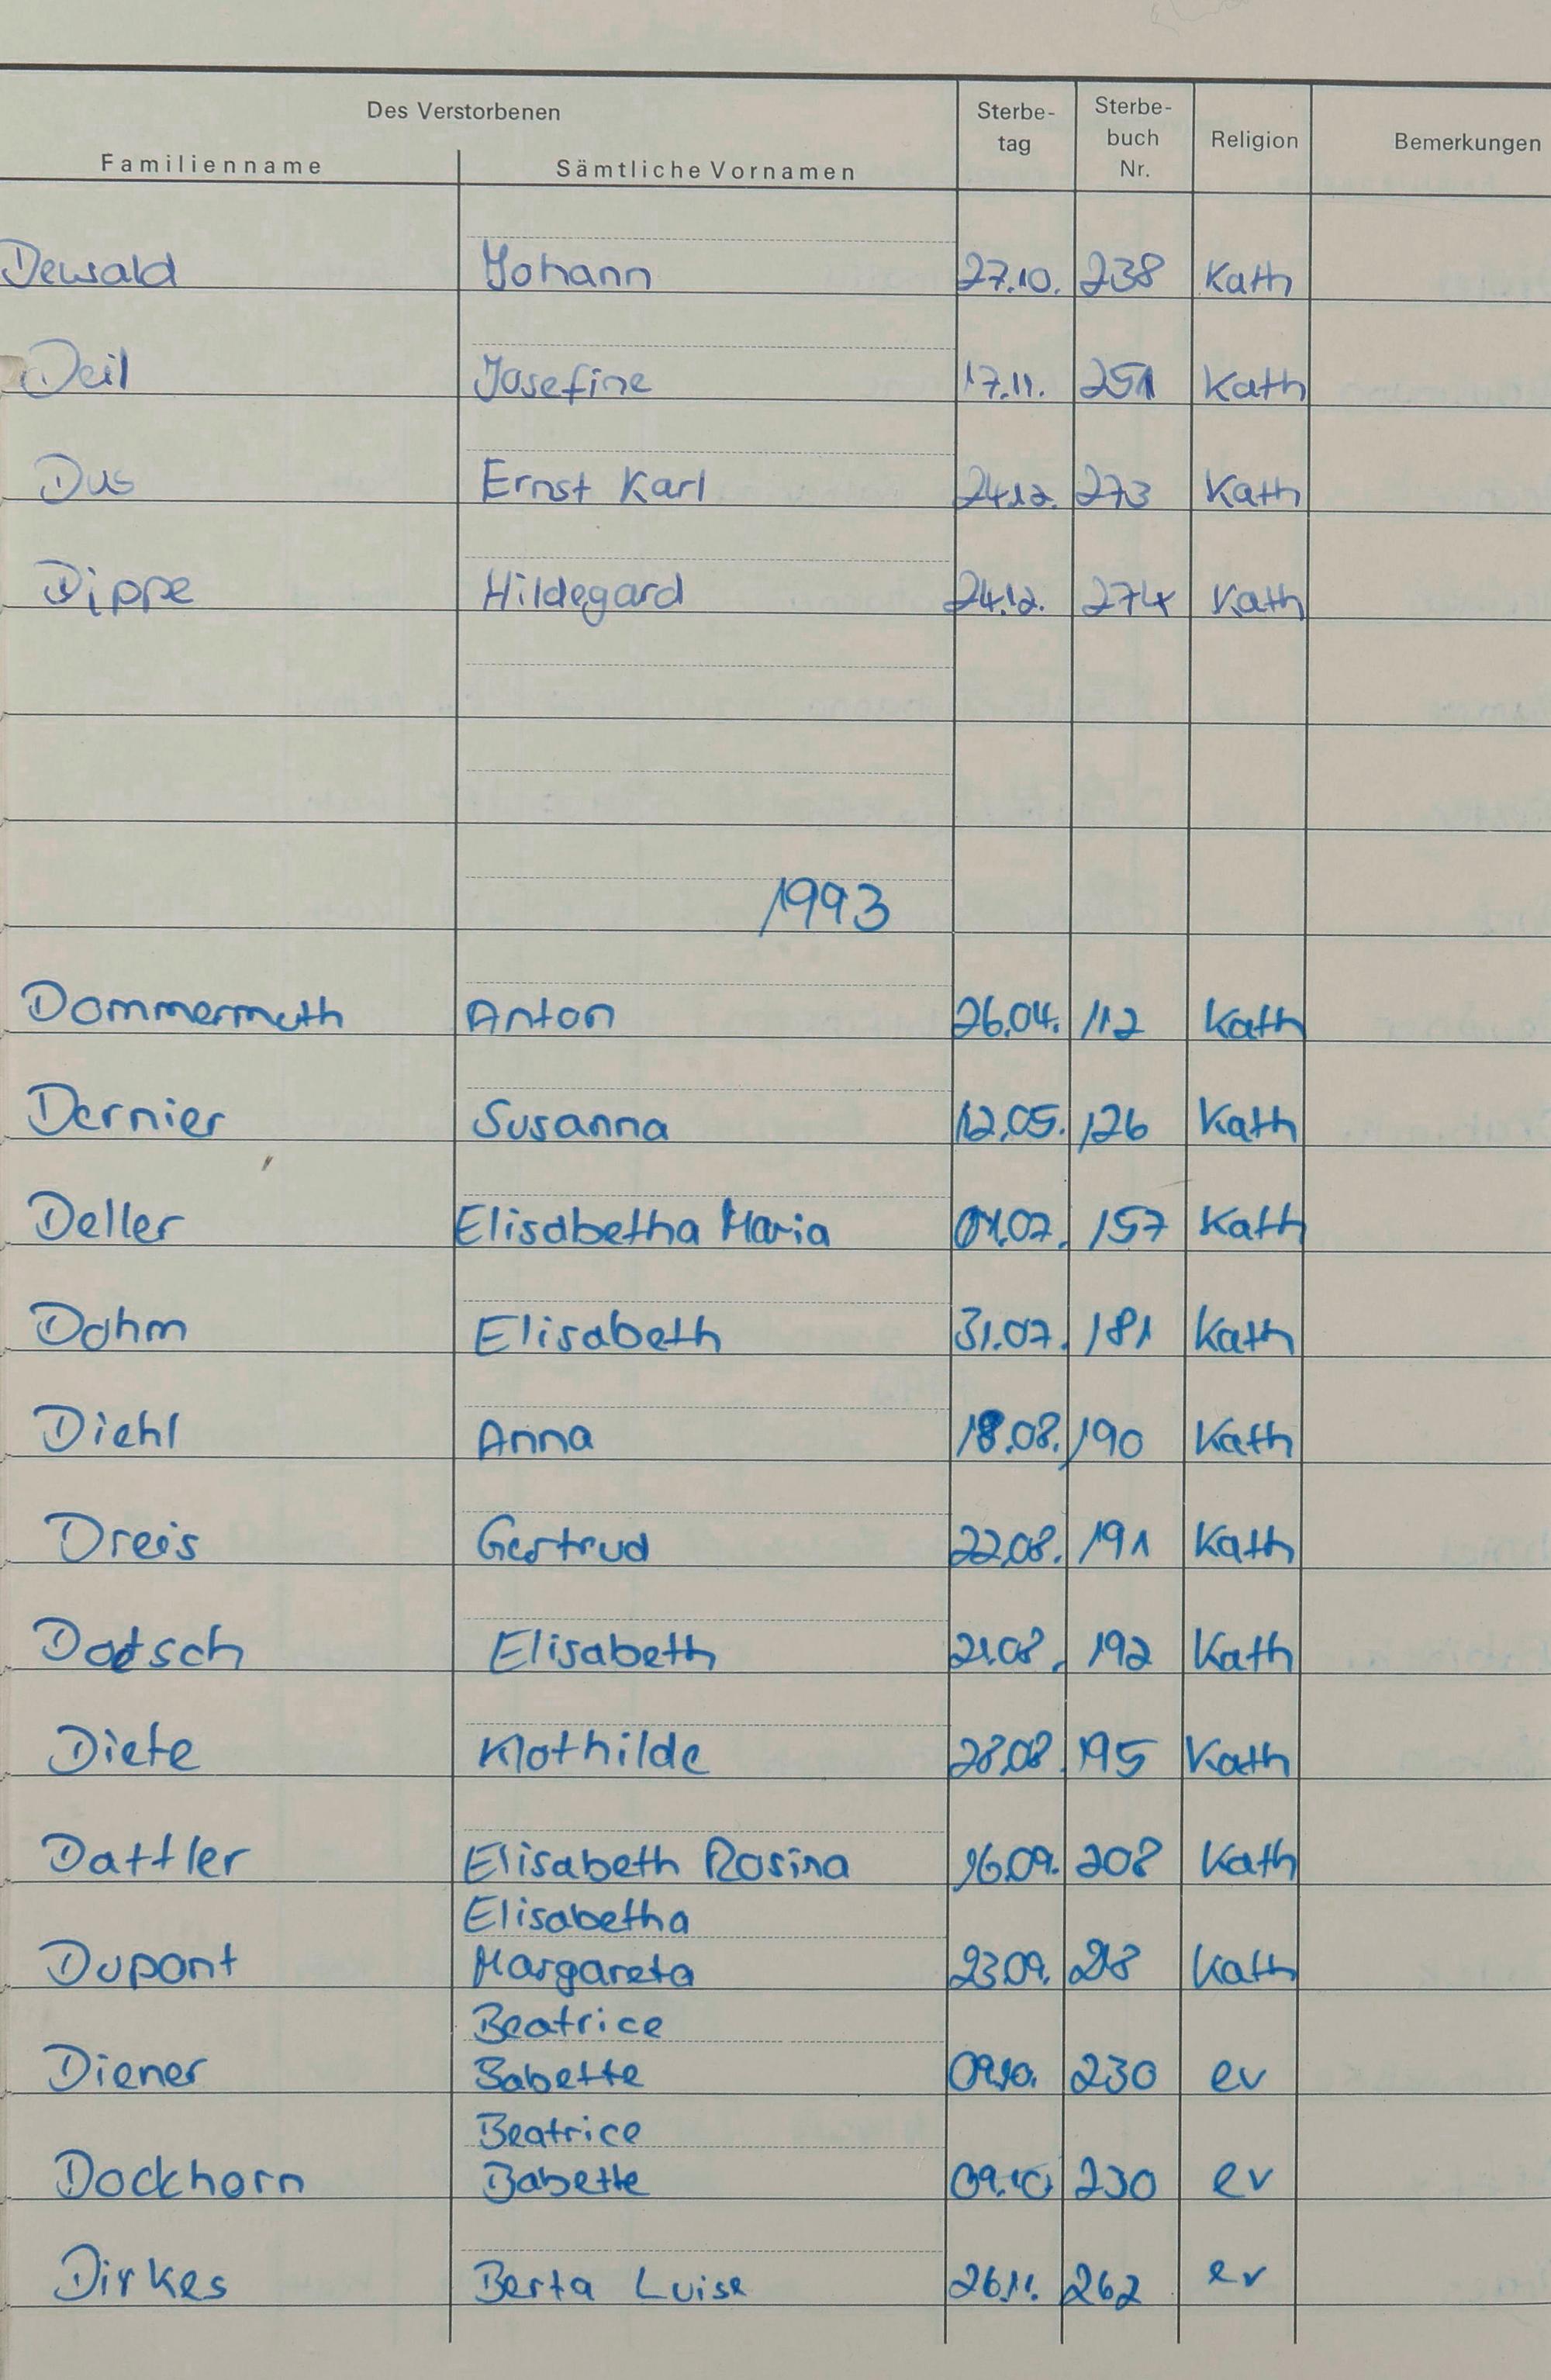 Des Verstorbenen
Familienname Sämtliche Vornamen Sterbe-tag Sterbe-buch Nr. Religion Bemerkungen
Dewald Johann 27.10. 238 Kath
Deil Josefine 17.11. 251 Kath
Dus Ernst Karl 24.12. 273 Kath
Dippe Hildegard 24.12. 274 Kath
1993
Dommermuth Anton 26.04. 112 Kath
Dernier Susanna 12.05. 126 Kath
Deller Elisabetha Maria 01.07. 157 Kath
Dohm Elisabeth 31.07. 181 Kath
Diehl Anna 18.08. 190 Kath
Dreis Gertrud 22.08. 191 Kath
Dotsch Elisabeth 21.08. 192 Kath
Diete Klothilde 28.08. 195 Kath
Dattler Elisabeth Rosina 16.09. 208 Kath
Elisabetha
Dupont Margareta 23.09. 218 Kath
Beatrice
Diener Babette 09.10. 230 ev
Beatrice
Dockhorn Babette 09.10. 230 ev
Dirkes Berta Luise 26.11. 262 ev